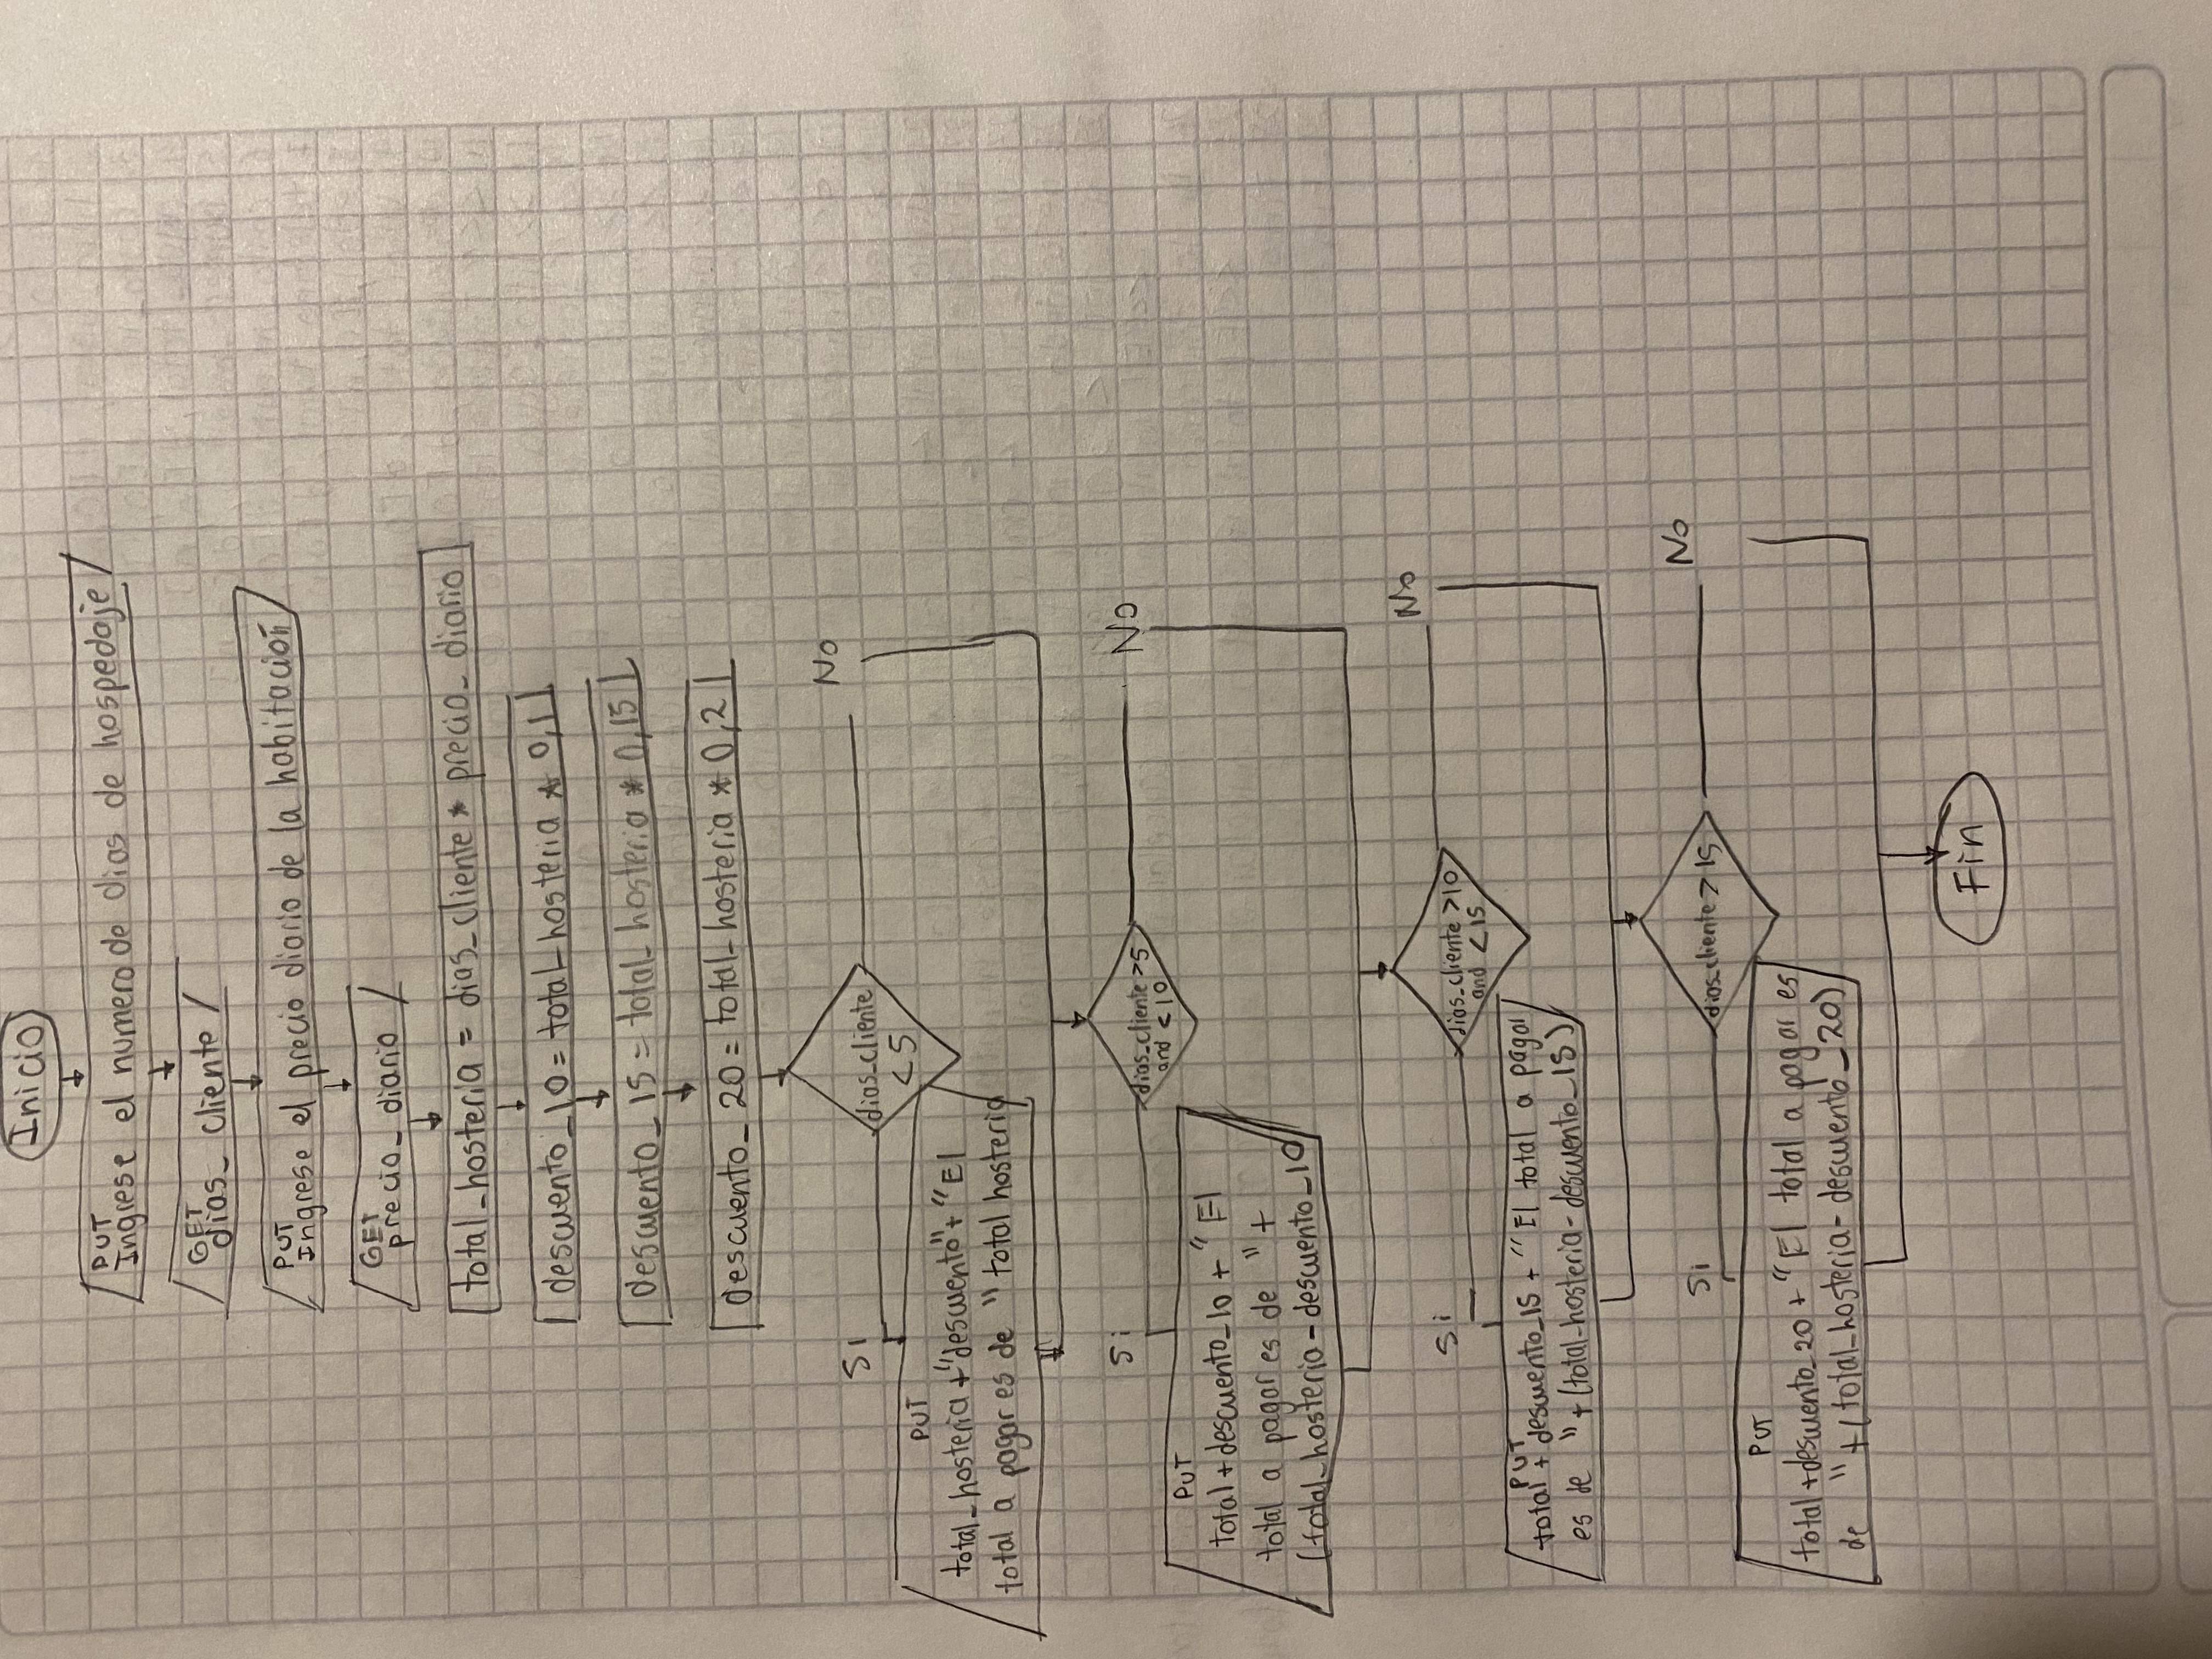 Inicio
PUT
Ingrese el numero de dias de hospedaje
GET
dias_ cliente
PUT
Ingrese el precio diario de la habitación
GET
precio_ diario
total_hosteria = dias_cliente * precio_ diario
descuento_10 = total_hosteria * 0,1
descuento_ 15 = total_ hosteria * 0,15
descuento_ 20 = total_hosteria * 0,2
No
Si
dias_cliente
< 5
PUT
total_hosteria + "descuento" + "El
total a pagar es de " total hosteria
Si
No
dias_cliente >5
and < 10
PUT
total + descuento_10 + "El
total a pagar es de " +
(total_hosteria - descuento_10
No
Si
dias_cliente >10
and < 15
PUT
total + descuento_15 + "El total a pagar
es de " + (total_hosteria - descuento_15)
No
Si
dias_cliente > 15
PUT
total + descuento_20 + "El total a pagar es
de " + (total_hosteria - descuento_20)
Fin